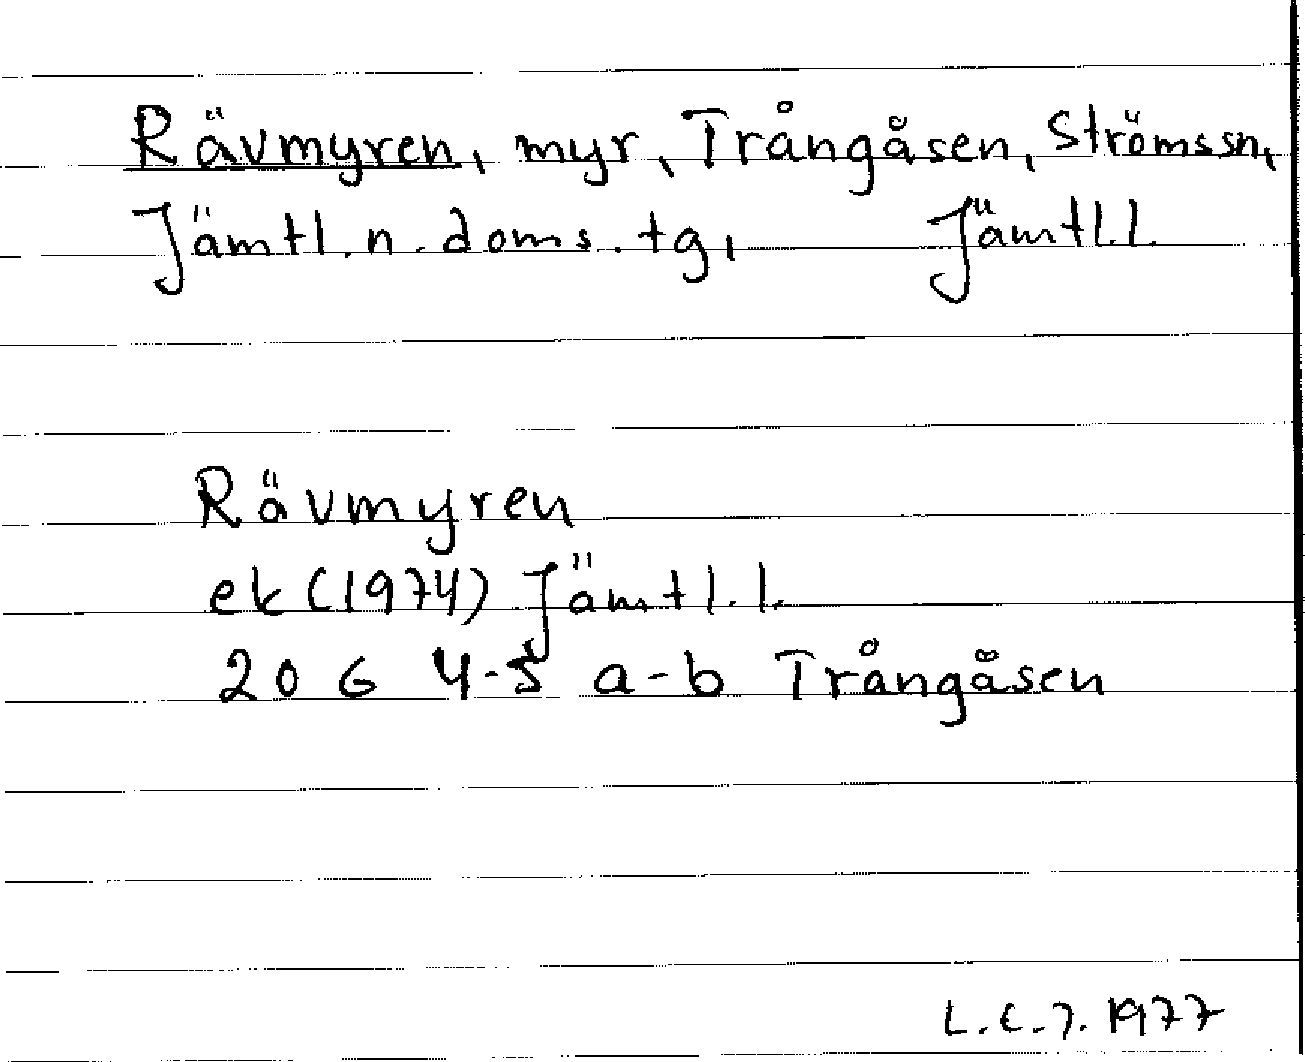 Rävmyren, myr, Trångåsen, Strömssn,
Jämtl. n. doms. tg, Jämtl.l.
Rävmyren
ek (1974) Jämtl.l.
20 G 4-5 a-b Trångåsen
1977